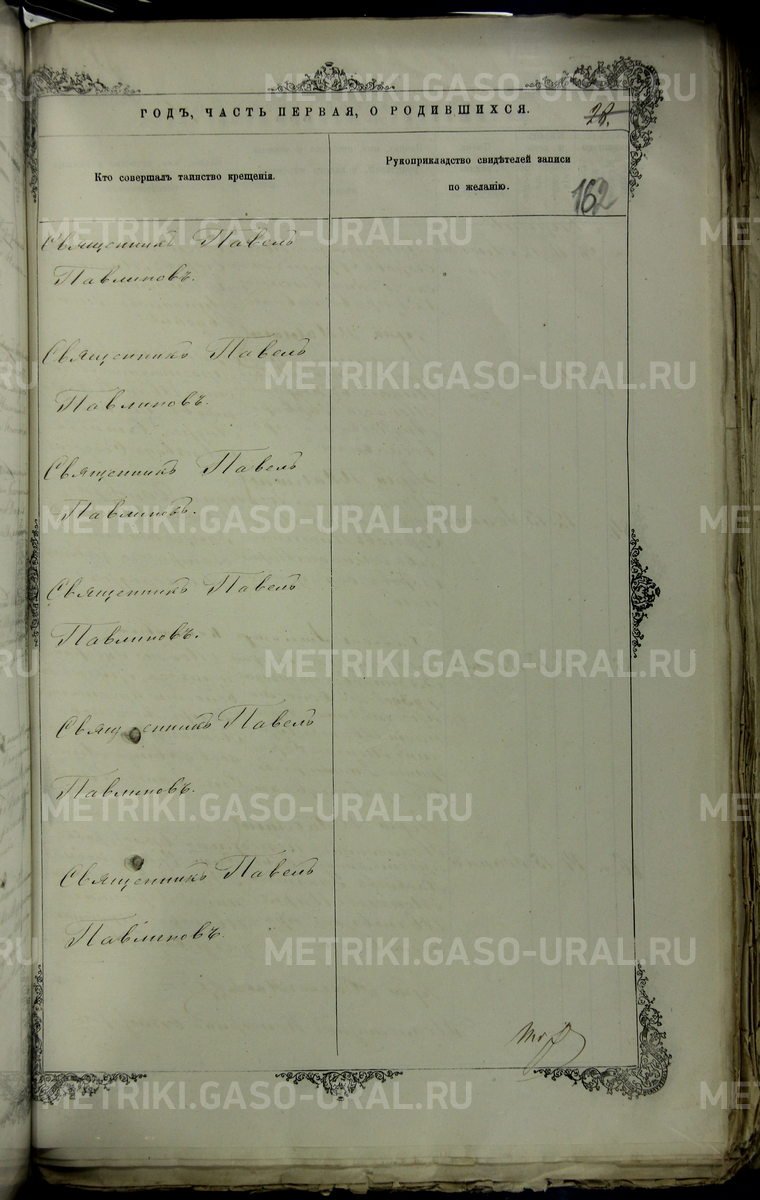 ГОДЪ, ЧАСТЬ ПЕРВАЯ, О РОДИВШИХСЯ.
28.
Кто совершалъ таинство крещенія.
Рукоприкладство свидѣтелей записи
по желанію.
162
Священникъ Павелъ
Павлиновъ.
Священникъ Павелъ
Павлиновъ.
Священникъ Павелъ
Павлиновъ.
Священникъ Павелъ
Павлиновъ.
Священникъ Павелъ
Павлиновъ.
Священникъ Павелъ
Павлиновъ.
METRIKI.GASO-URAL.RU